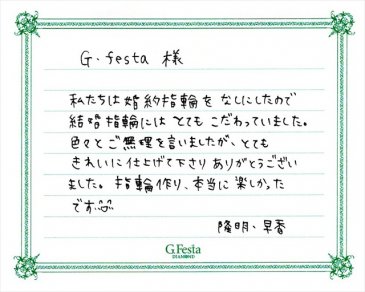 G・festa 様
私たちは婚約指輪をなしにしたので
結婚指輪にはとてもこだわっていました。
色々とご無理を言いましたが、とても
きれいに仕上げて下さりありがとうござい
ました。指輪作り、本当に楽しかった
です
隆明・早香
G.Festa
DIAMOND